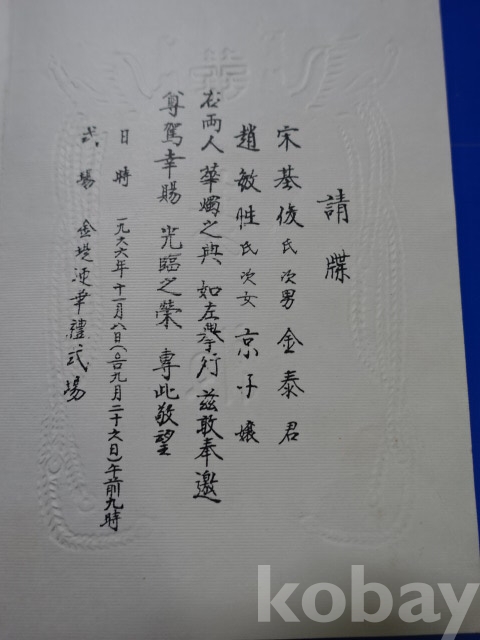 請牒
宋基俊氏 次男 金泰君
趙敏性氏 次女 京子嬢
右両人 華燭之典 如左擧行 玆敢奉邀
尊駕幸賜 光臨之榮 專此敬望
日時 一九六六年十一月八日(음九月二十六日)午前九時
式場 金堤 幸禮式場
kobay